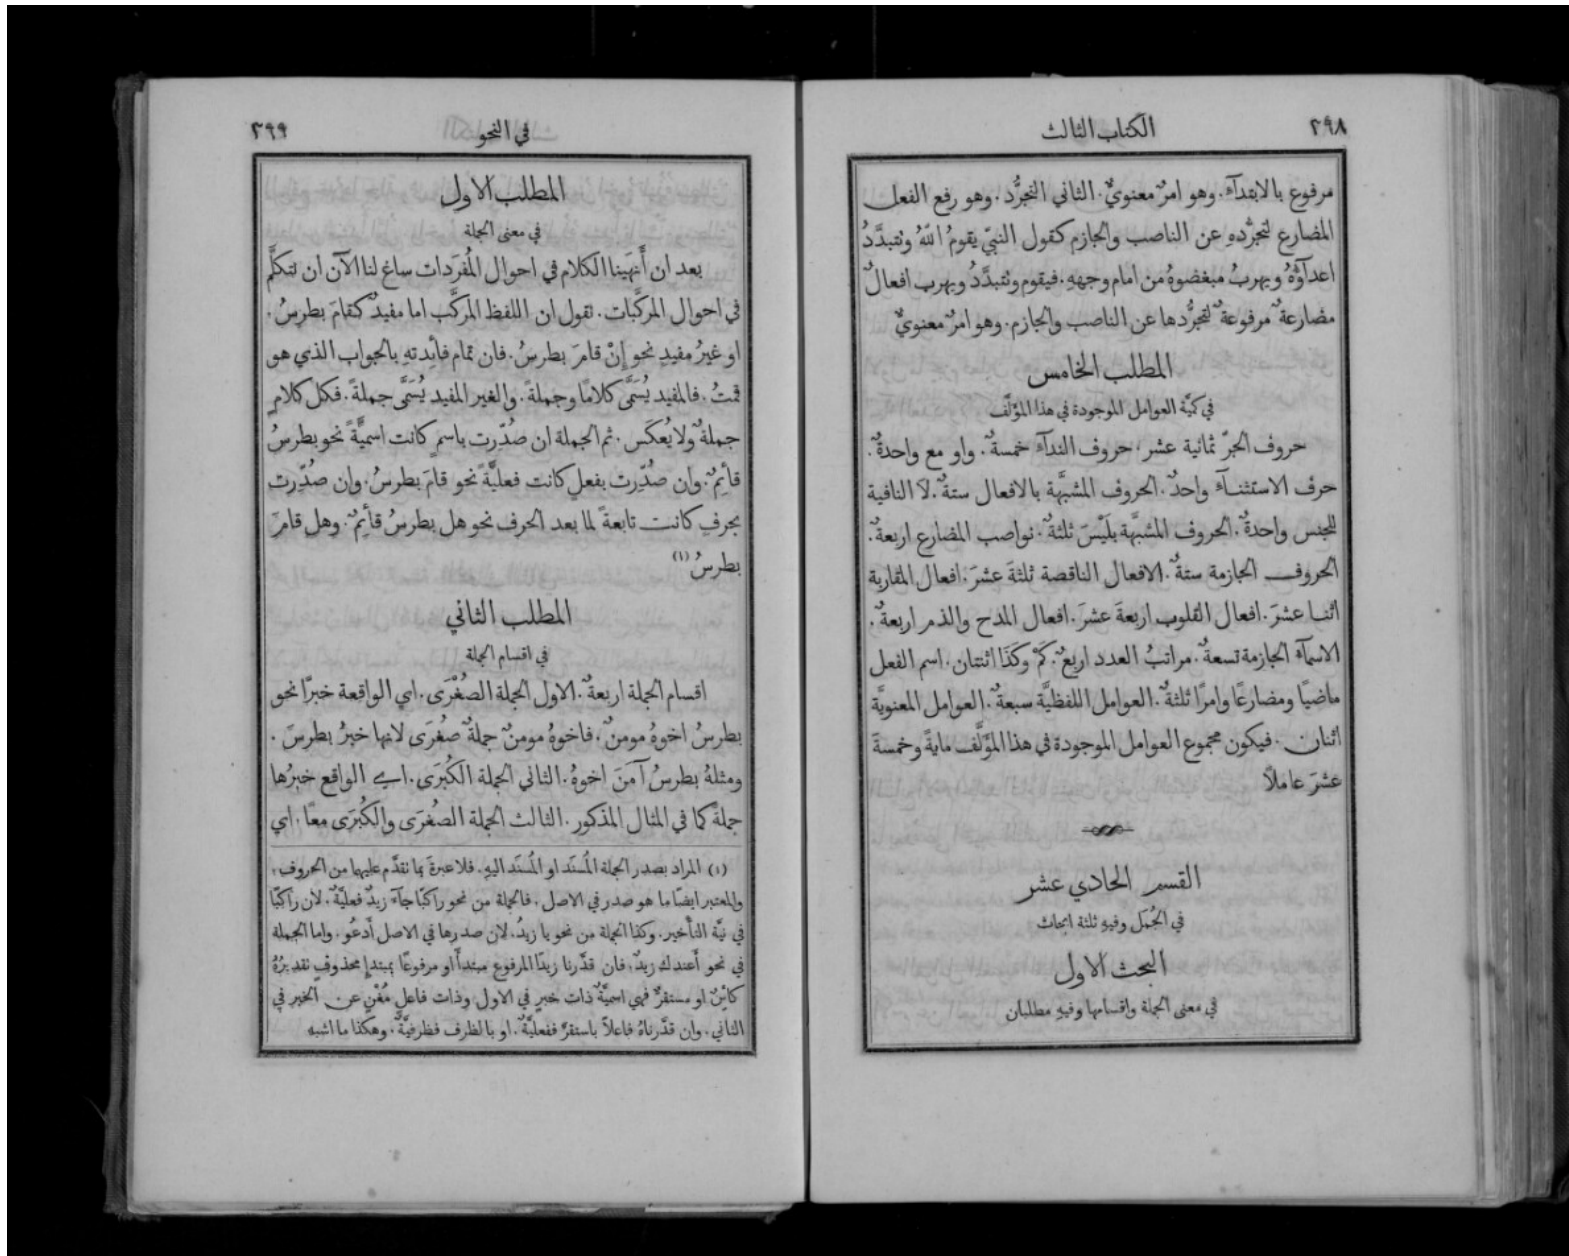 ٢٩٨
الكتاب الثالث
مرفوع بالابتدآء. وهو امرٌ معنويٌّ. الثاني التجرُّد. وهو رفع الفعل
المضارع لتجرُّدهِ عن الناصب والجازم كقول النبيّ يقومُ اللّٰهُ وتتبدَّدُ
اعدآؤُهُ ويهربُ مبغضوهُ من امام وجههِ. فيقوم وتتبدَّدُ ويهرب افعالٌ
مضارعةٌ مرفوعةٌ لتجرُّدها عن الناصب والجازم. وهو امرٌ معنويٌّ
المطلب الخامس
في كميَّة العوامل الموجودة في هذا المؤلَّف
حروف الجرّ ثمانية عشر. حروف الندآء خمسةٌ. واو مع واحدةٌ.
حرف الاستثنآء واحدٌ. الحروف المشبَّهة بالافعال ستةٌ. لَا النافية
للجنس واحدةٌ. الحروف المشبَّهة بلَيْسَ ثلثةٌ. نواصب المضارع اربعةٌ.
الحروف الجازمة ستةٌ. الافعال الناقصة ثلثةَ عشرَ. افعال المقاربة
اثنا عشرَ. افعال القلوب اربعةَ عشرَ. افعال المدح والذم اربعةٌ.
الاسمآء الجازمة تسعةٌ. مراتبُ العدد اربعٌ. كَمْ وكَذَا اثنتان. اسم الفعل
ماضيًا ومضارعًا وامرًا ثلثةٌ. العوامل اللفظيَّة سبعةٌ. العوامل المعنويَّة
اثنان. فيكون مجموع العوامل الموجودة في هذا المؤَلَّف مايةً وخمسةَ
عشرَ عاملًا
القسم الحادي عشر
في الجُمَل وفيهِ ثلثة ابحاث
البحث الاول
في معنى الجملة واقسامها وفيهِ مطلبان
في النحو
٢٩٩
المطلب الاول
في معنى الجملة
بعد ان أَنهَينا الكلام في احوال المُفرَدات ساغ لنا الآن ان نتكلَّم
في احوال المركَّبات. نقول ان اللفظ المركَّب اما مفيدٌ كقامَ بطرسُ.
او غيرُ مفيدٍ نحو إِنْ قامَ بطرسُ. فان تمام فائِدتهِ بالجواب الذي هو
قمتُ. فالمفيد يُسَمَّى كلامًا وجملةً. والغير المفيد يُسَمَّى جملةً. فكل كلامٍ
جملةٌ ولا يُعكَس. ثم الجملة ان صُدِّرت باسمٍ كانت اسميَّةً نحو بطرسُ
قائِمٌ. وان صُدِّرت بفعلٍ كانت فعليَّةً نحو قامَ بطرسُ. وان صُدِّرت
بحرفٍ كانت تابعةً لما بعد الحرف نحو هل بطرسُ قائِمٌ. وهل قامَ
بطرسُ (١)
المطلب الثاني
في اقسام الجملة
اقسام الجملة اربعةٌ. الاول الجملة الصُغْرَى. اي الواقعة خبرًا نحو
بطرسُ اخوهُ مومنٌ. فاخوهُ مومنٌ جملةٌ صغْرَى لانها خبرُ بطرسَ.
ومثلهُ بطرسُ آمنَ اخوهُ. الثاني الجملة الكُبْرَى. اي الواقع خبرُها
جملةً كما في المثال المذكور. الثالث الجملة الصُغْرَى والكُبْرَى معًا. اي
(١) المراد بصدر الجملة المُسنَد او المُسنَد اليهِ. فلا عبرةَ بما تقدَّم عليهما من الحروف.
والمعتبر ايضًا ما هو صدر في الاصل. فالجملة من نحو راكبًا جآء زيدٌ فعليَّةٌ. لان راكبًا
في نيَّة التأْخير. وكذا الجملة من نحو يا زيدُ. لان صدرها في الاصل أَدعُو. واما الجملة
في نحو أَعندك زيدٌ. فان قدَّرنا زيدًا المرفوع مبتدأً او مرفوعًا بمبتدإٍ محذوفٍ تقديرُهُ
كائِنٌ او مستقرٌّ فهي اسميَّةٌ ذات خبرٍ في الاول وذات فاعلٍ مُغْنٍ عن الخبر في
الثاني. وان قدَّرناهُ فاعلًا باستقرَّ ففعليَّةٌ. او بالظرف فظرفيَّةٌ. وهكذا ما اشبه